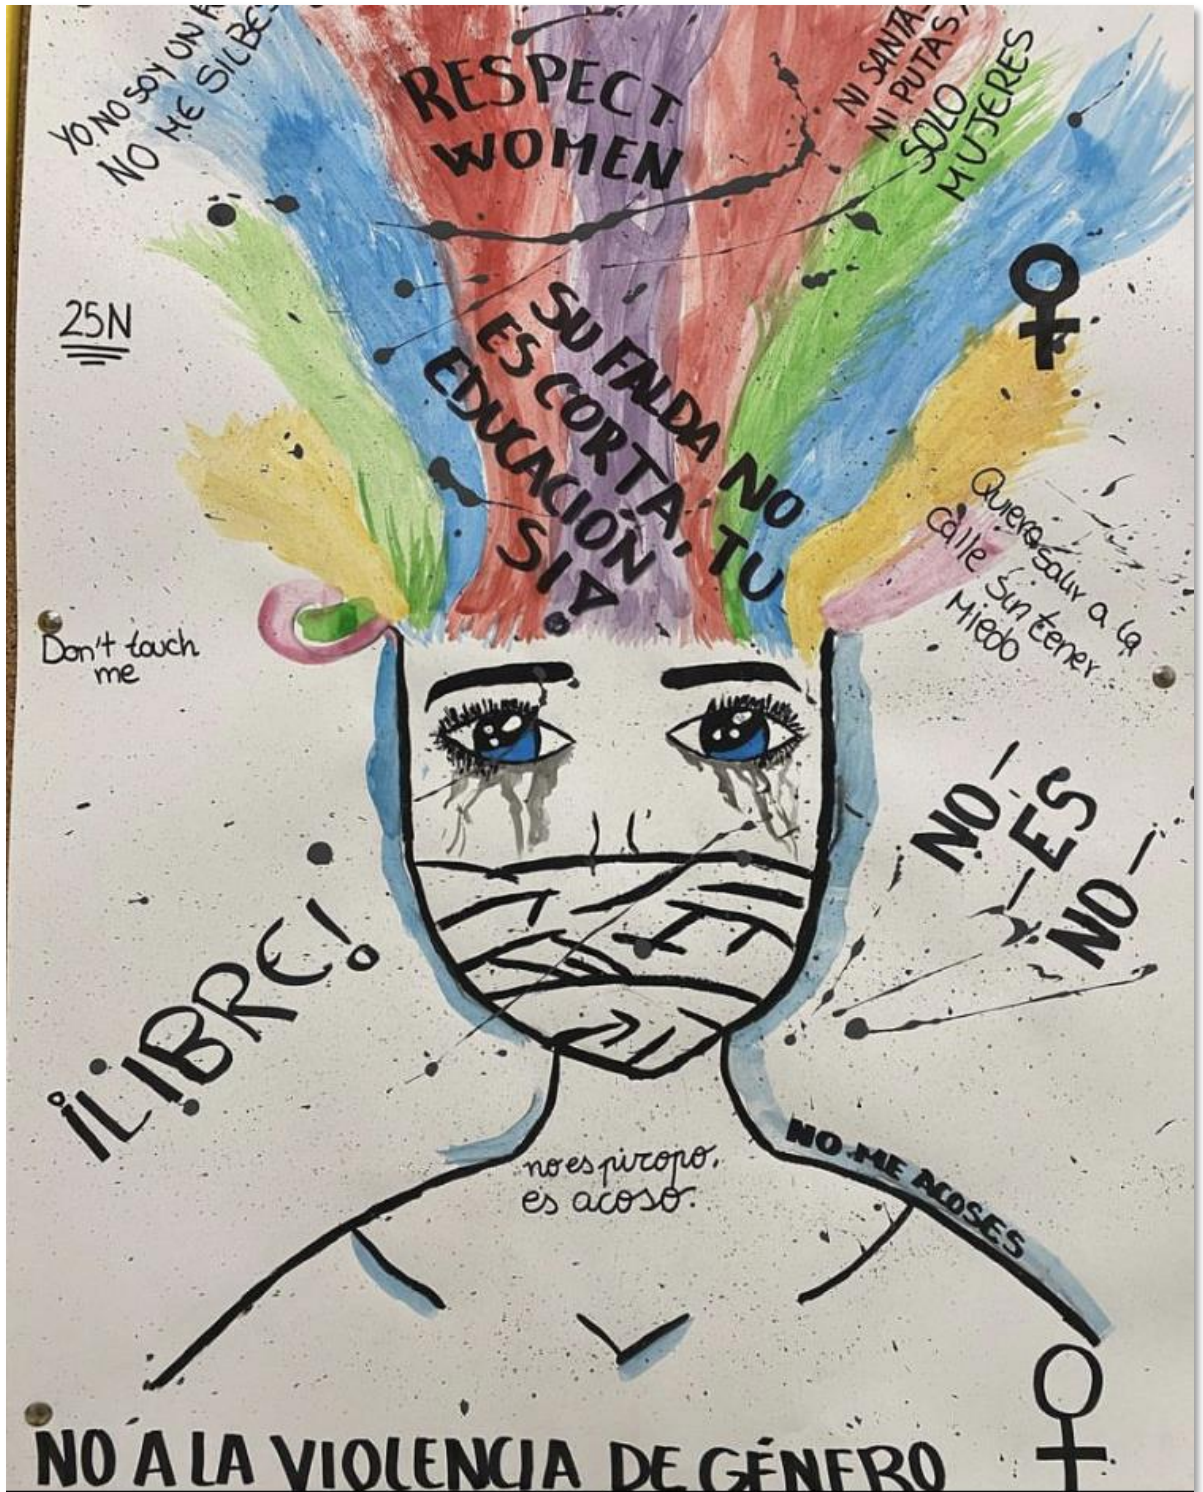 YO NO SOY UN
NO ME SILBE
RESPECT
WOMEN
NI SANTAS
NI PUTAS,
SOLO
MUJERES
25N
SU FALDA NO
ES CORTA, TU
EDUCACIÓN
SI!
Quiero salir a la
calle sin tener
Miedo
Don't touch
me
NO
ES
NO
¡LIBRE!
no es piropo,
es acoso.
NO ME ACOSES
NO A LA VIOLENCIA DE GÉNERO